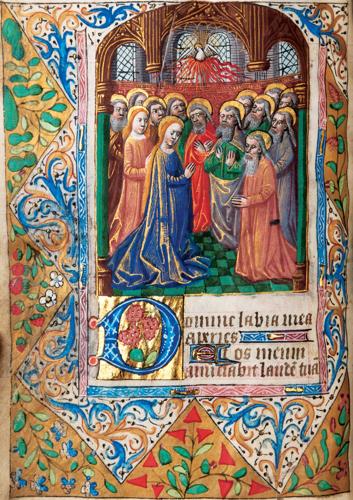 Domine labia mea
aperies
Et os meum
annūciabit laudē tuā